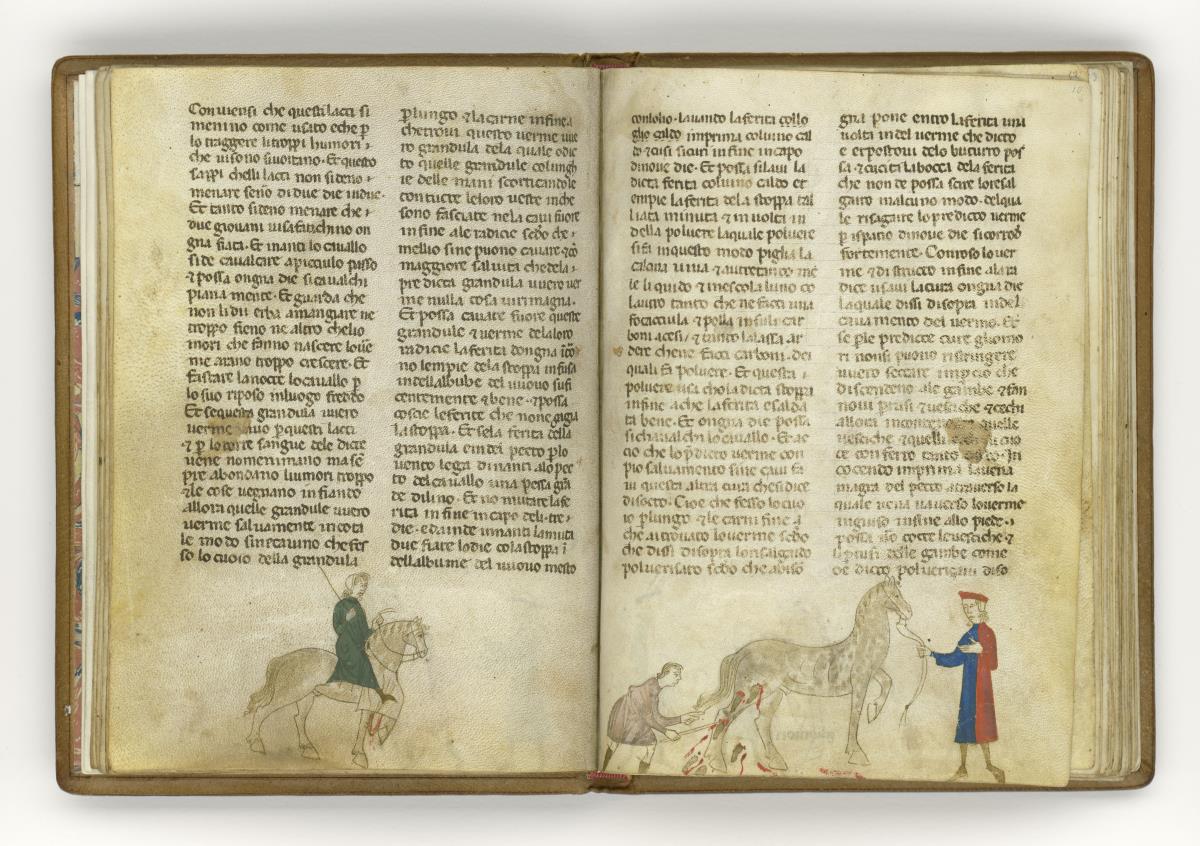 Conviensi che questi lacci si
menino come usato e che p
lo traggere li troppi humori
che visono si votano. Et questo
sappi chelli lacci non si deno
menare seno di due die indue.
Et tanto si deno menare che
due giovani visafatichino on
gna fiata. Et inanti lo cavallo
si de cavalcare a picciulo passo
& possa ongna die si cavalchi
piana mente. Et guarda che
non li dii erba amangiare ne
troppo fieno ne altro chelio
mori che fanno nascere lover
me arano troppo crescere. Et
fa stare la nocte lo cavallo p
lo suo riposo inluogo freddo
Et se questa grandula uvero
verme p questi lacci
& p lo sangue dele dicte
vene nomenimano ma sem
pre abondano liumori troppo
& le cose vegnano infiando
allora quelle grandule uvero
verme salvamente in cota
le modo sine cavino che fes
so lo cuoio della grandula
plungo & la carne infine a
che trovi questo verme uve
ro grandula dela quale o dic
to quelle grandule colungh
ie delle mani scorticandole
con tucte le loro veste inche
sono fasciate nela cavi fuore
infine ale radicie
mellio sine puono cavare
maggiore salvita che dela
predicta grandula uvero ver
me nulla cosa virimagna.
Et possa cavate fuore queste
grandule & verme delaloro
radicie la ferita dongna
no lempie dela stoppa infusa
indell albube del uuovo sufi
centemente & bene & possa
cosi le ferite che none
la stoppa. Et sela ferita della
grandula e indel pecto plo
vento lega dinanti alo pec
to del cavallo una possa gran
de di lino. Et no mutare la fe
rita infine incapo deli tre
die. e da inde inanti la muti
due fiate lo die cola stoppa
dell albume del uuovo mesto
con lolio. lavando la ferita collo
glio caldo imprima col vino cal
do & cusi sicuri infine incapo
di nove die. Et possa si lavi la
dicta ferita col vino caldo et
empie la ferita dela stoppa tal
liata minuta & involti in
della polvere la quale polvere
si fa inquesto modo piglia la
calcina viva & autretanto me
le liquido & mescola luno co
laltro tanto che ne facci una
focacciula & polla insuli car
boni acesi & tanto la lassa ar
dere chene facci carboni. dei
quali fa polvere. Et questa
polvere usa chola dicta stoppa
infine a che la ferita e salda
ta bene. Et ongna die possa
si chavalchi lo cavallo. Et ac
cio che lo predicto verme con
pio salvamento sine cavi fa
ni questa altra cura che si dice
di socto. Cioe che fesso lo cuo
io plungo & le carni fine a
che ai trovato loverme
che dissi di sopra lo risalgado
polverisato che
gna pone entro la ferita una
volti indel verme che dicto
e et postovi delo butturo pos
sa & cuci la bocca dela ferita
che non de possa scire lo resal
garo malcuno modo. del qua
le risagare lo predicto verme
p ispatio di nove die si corrode
fortemente. Corroso lo ver
me & distructo infine ala ra
dice usavi la cura ongna die
la quale dissi di sopra indel
cavamento del vermo. Et
se ple predicte cure gliomo
ri nonsi puono ristringere
uvero seccare imp cio che
discendeno ale gambe & fan
novi prusi & vesciche & cechi
allora quelle
vesciche & quelli cuo
ce con ferro tanto In
cocendo imprima la vena
magra del pecto atraverso la
quale vena va verso loverme
ingiuso infine allo piede
possa cocte le vesciche &
prusi delle gambe come
dicto di so